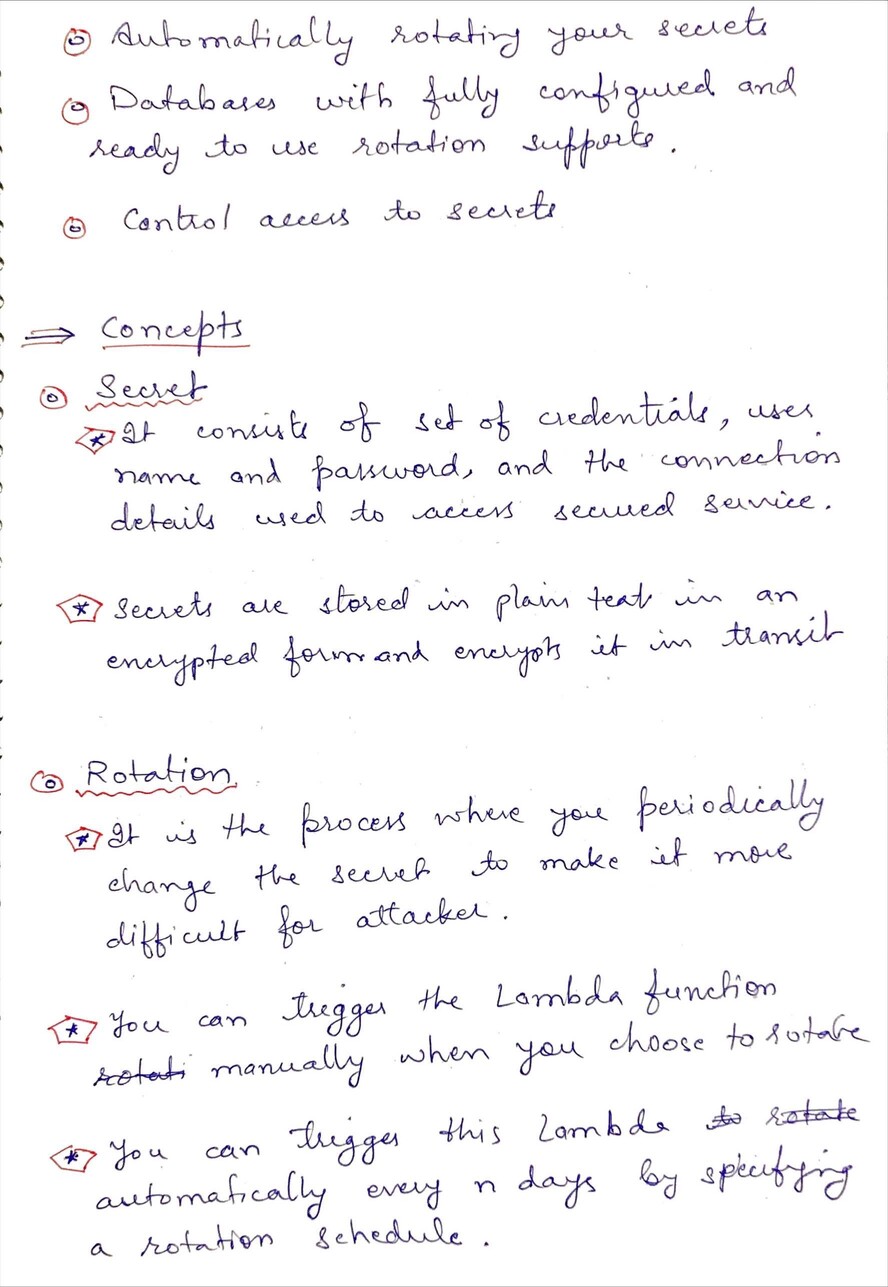 Automatically rotating your secrets
Databases with fully configured and
ready to use rotation supports.
Control access to secrets
⇒ Concepts
Secret
It consists of set of credentials, user
name and password, and the connection
details used to access secured service.
Secrets are stored in plain text in an
encrypted form and encrypts it in transit
Rotation
It is the process where you periodically
change the secret to make it more
difficult for attacker.
You can trigger the Lambda function
rotati manually when you choose to rotate
You can trigger this Lambda to rotate
automatically every n days by specifying
a rotation schedule.